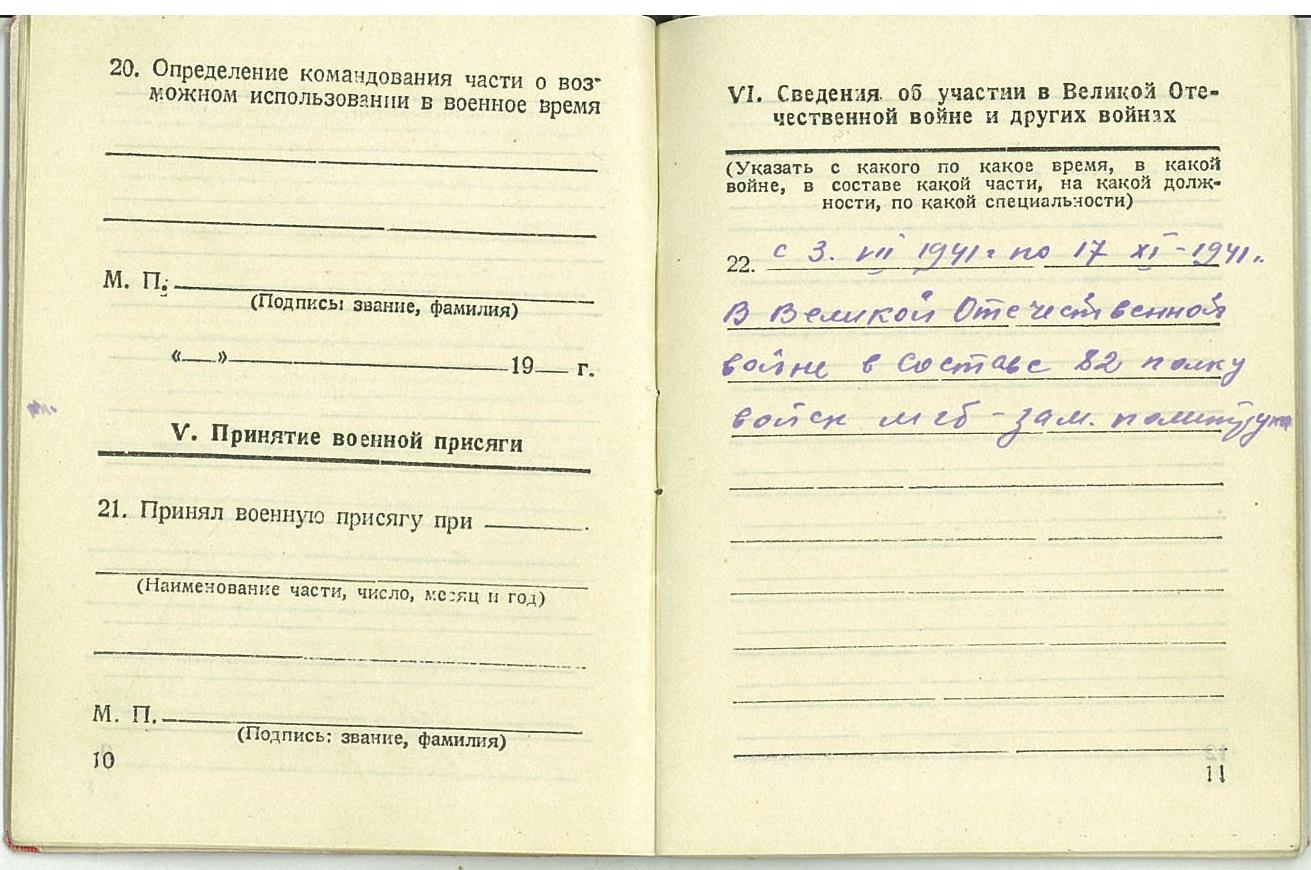 20. Определение командования части о воз-
можном использовании в военное время
М. П.
(Подпись: звание, фамилия)
«__» 19__ г.
V. Принятие военной присяги
21. Принял военную присягу при
(Наименование части, число, месяц и год)
М. П.
(Подпись: звание, фамилия)
10
VI. Сведения об участии в Великой Оте-
чественной войне и других войнах
(Указать с какого по какое время, в какой
войне, в составе какой части, на какой долж-
ности, по какой специальности)
22. с 3. VII 1941 г по 17 XI - 1941 г.
В Великой Отечественной
войне в составе 82 полку
войск мгб - зам. политрука
11